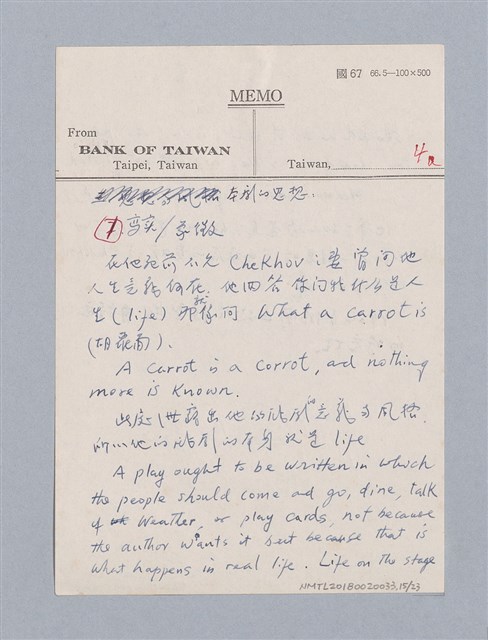 國 67 66.5—100×500
MEMO
From
BANK OF TAIWAN
Taipei, Taiwan
Taiwan,
4a
本劇的思想.
⑦ 写实/象徵
在他死前不久 Chekhov の妻曾问他
人生意義何在. 他回答 你问我什么是人
生(life) 就像问 What a carrot is
(胡蘿蔔).
A carrot is a corrot, ad nothing
more is known.
此定 他的活劇の意義与風格.
所以他的活劇的本身就是 life
A play ought to be written in which
the people should come ad go, dine, talk
of weather, or play cards, not because
the author wants it but because that is
what happens in real life. Life on the stage
NMTL20180020033, 15/23